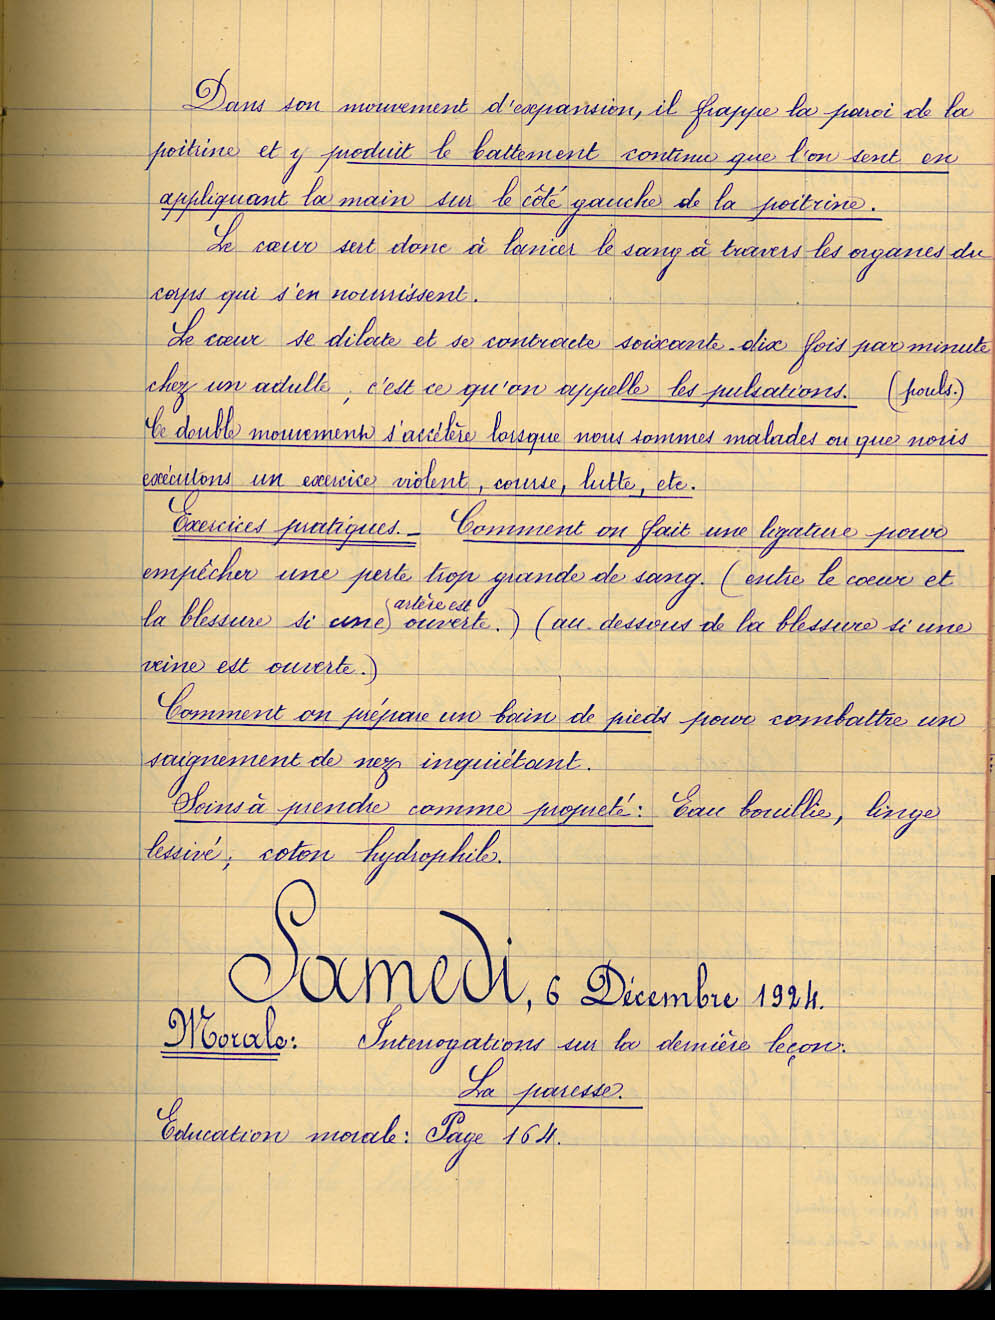 Dans son mouvement d'expansion, il frappe la paroi de la
poitrine et y produit le battement continu que l'on sent en
appliquant la main sur le côté gauche de la poitrine.
Le cœur sert donc à lancer le sang à travers les organes du
corps qui s'en nourrissent.
Le cœur se dilate et se contracte soixante-dix fois par minute
chez un adulte, c'est ce qu'on appelle les pulsations. (pouls.)
Ce double mouvement s'accélère lorsque nous sommes malades ou que nous
exécutons un exercice violent, course, lutte, etc.
Exercices pratiques._ Comment on fait une ligature pour
empêcher une perte trop grande de sang. (entre le cœur et
la blessure si une artère est ouverte.) (au-dessous de la blessure si une
veine est ouverte.)
Comment on prépare un bain de pieds pour combattre un
saignement de nez inquiétant.
Soins à prendre comme propreté: Eau bouillie, linge
lessivé, coton hydrophile.
Samedi, 6 Décembre 1924.
Morale: Interrogations sur la dernière leçon.
La paresse.
Education morale: Page 164.